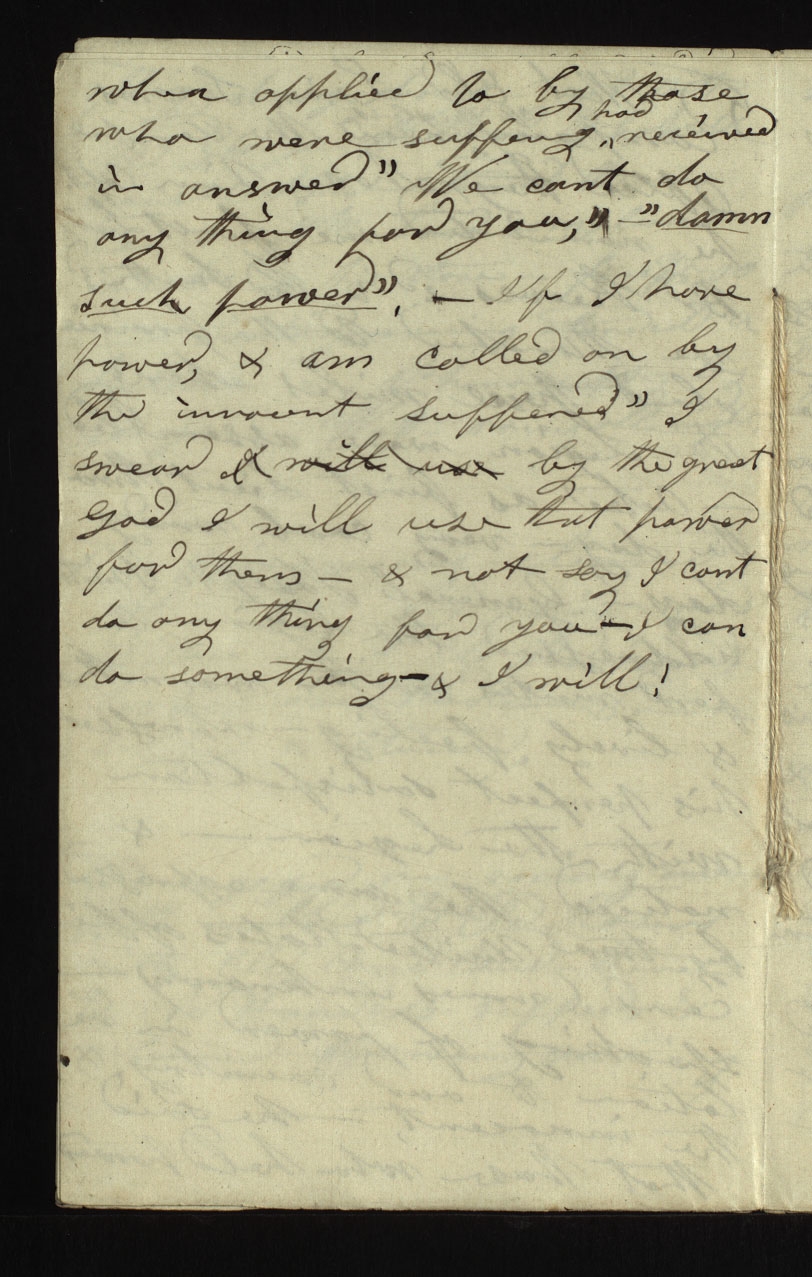 when applied to by those
who were suffering, had received
in answer" We cant do
any thing for you," - "damn
such power", - If I have
power, & am called on by
the innocent sufferer" I
swear I will use by the great
God I will use that power
for them - & not say I cant
do any thing for you" - I can
do something - & I will!